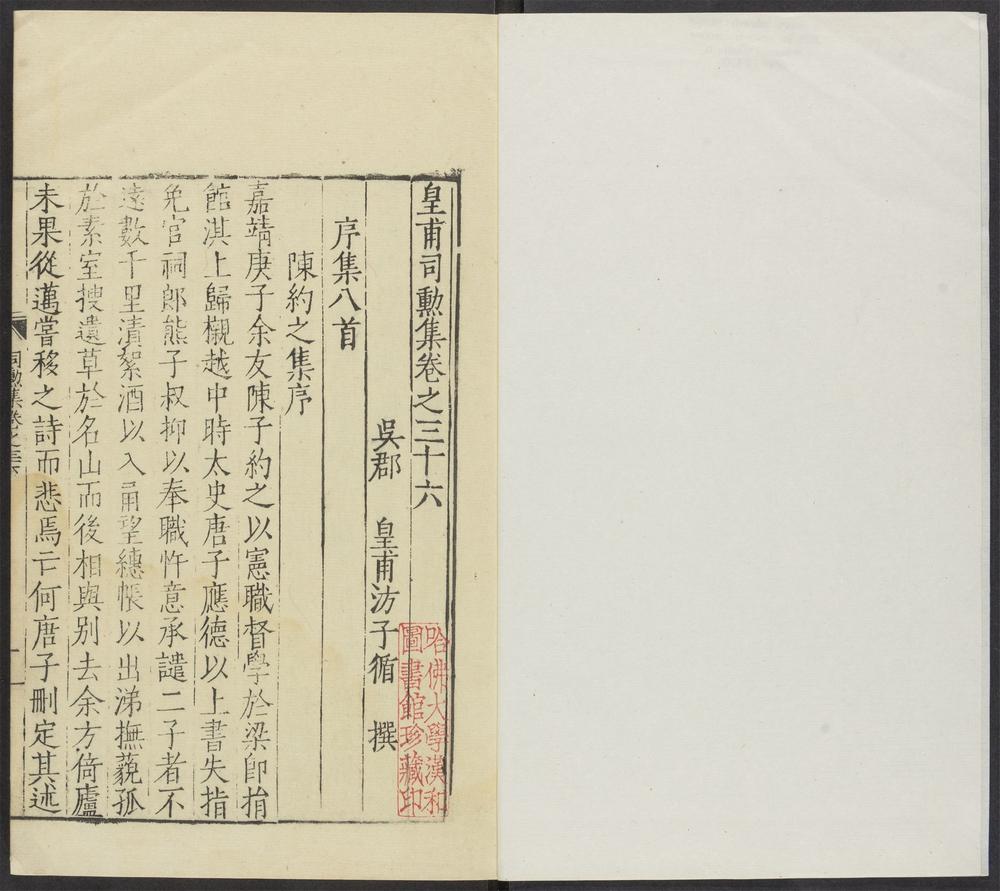 皇甫司勲集卷之三十六
吳郡 皇甫汸子循 撰
序集八首
陳約之集序
嘉靖庚子余友陳子約之以憲職督學於梁卽捐
館淇上歸櫬越中時太史唐子應德以上書失指
免官祠郎熊子叔抑以奉職忤意承譴二子者不
遠數千里漬絮酒以入甬望繐帳以出涕撫藐孤
於素室搜遺草於名山而後相與别去余方倚廬
未果從邁嘗移之詩而悲焉亡何唐子刪定其述
司勲集卷之三六
哈佛大學漢和
圖書館珍藏印